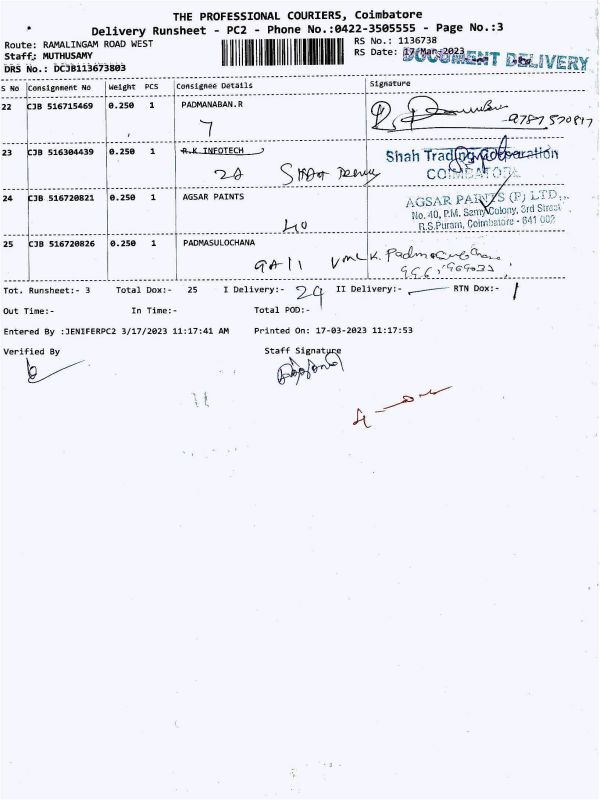 THE PROFESSIONAL COURIERS, Coimbatore
Delivery Runsheet - PC2 - Phone No.:0422-3505555 - Page No.:3
Route: RAMALINGAM ROAD WEST
RS No.: 1136738
Staff: MUTHUSAMY
RS Date: 17-Mar-2023
DOCUMENT DELIVERY
DRS No.: DCJB113673803
S No Consignment No Weight PCS Consignee Details Signature
22 CJB 516715469 0.250 1 PADMANABAN.R
7
9787570817
23 CJB 516304439 0.250 1 R.K INFOTECH
Shah Trading Corporation
COIMBATORE
20
24 CJB 516720821 0.250 1 AGSAR PAINTS
AGSAR PAINTS (P) LTD.,
No. 40, P.M. Samy Colony, 3rd Street
R.S.Puram, Coimbatore - 641 002
40
25 CJB 516720826 0.250 1 PADMASULOCHANA
K. Padmasulochana
Tot. Runsheet:- 3 Total Dox:- 25 I Delivery:- 24 II Delivery:- RTN Dox:- 1
Out Time:- In Time:- Total POD:-
Entered By :JENIFERPC2 3/17/2023 11:17:41 AM Printed On: 17-03-2023 11:17:53
Verified By Staff Signature